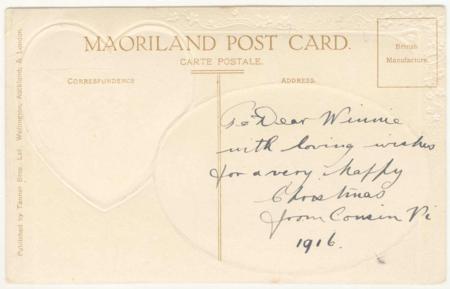 MAORILAND POST CARD.
CARTE POSTALE.
CORRESPONDENCE
ADDRESS.
British
Manufacture.
To Dear Winnie
with loving wishes
for a very Happy
Christmas
from Cousin Vi
1916.
Published by Tanner Bros. Ltd. Wellington, Auckland, & London.